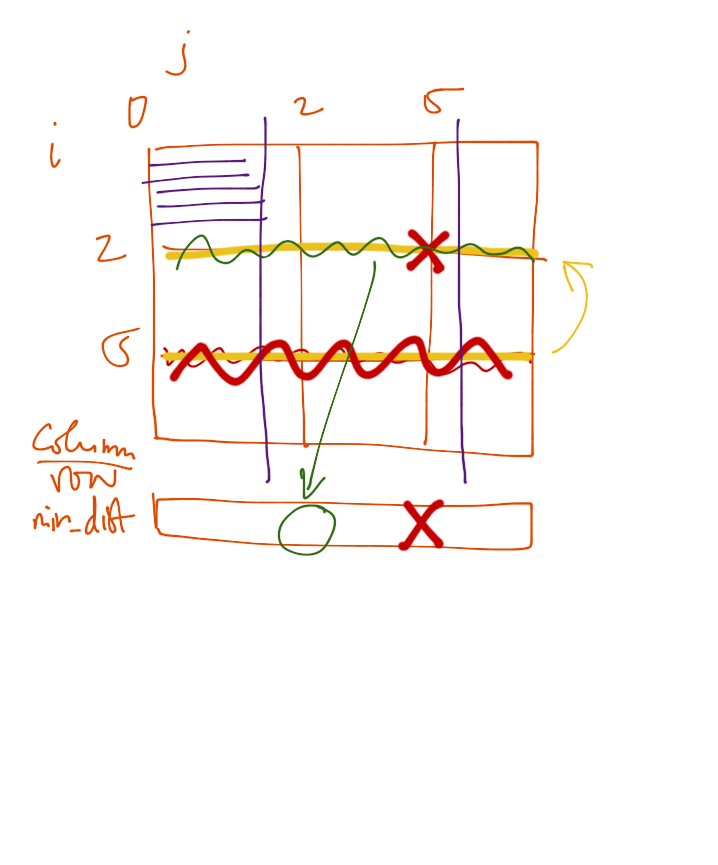 j
0 2 5
i
2
5
Column
row
min_dist